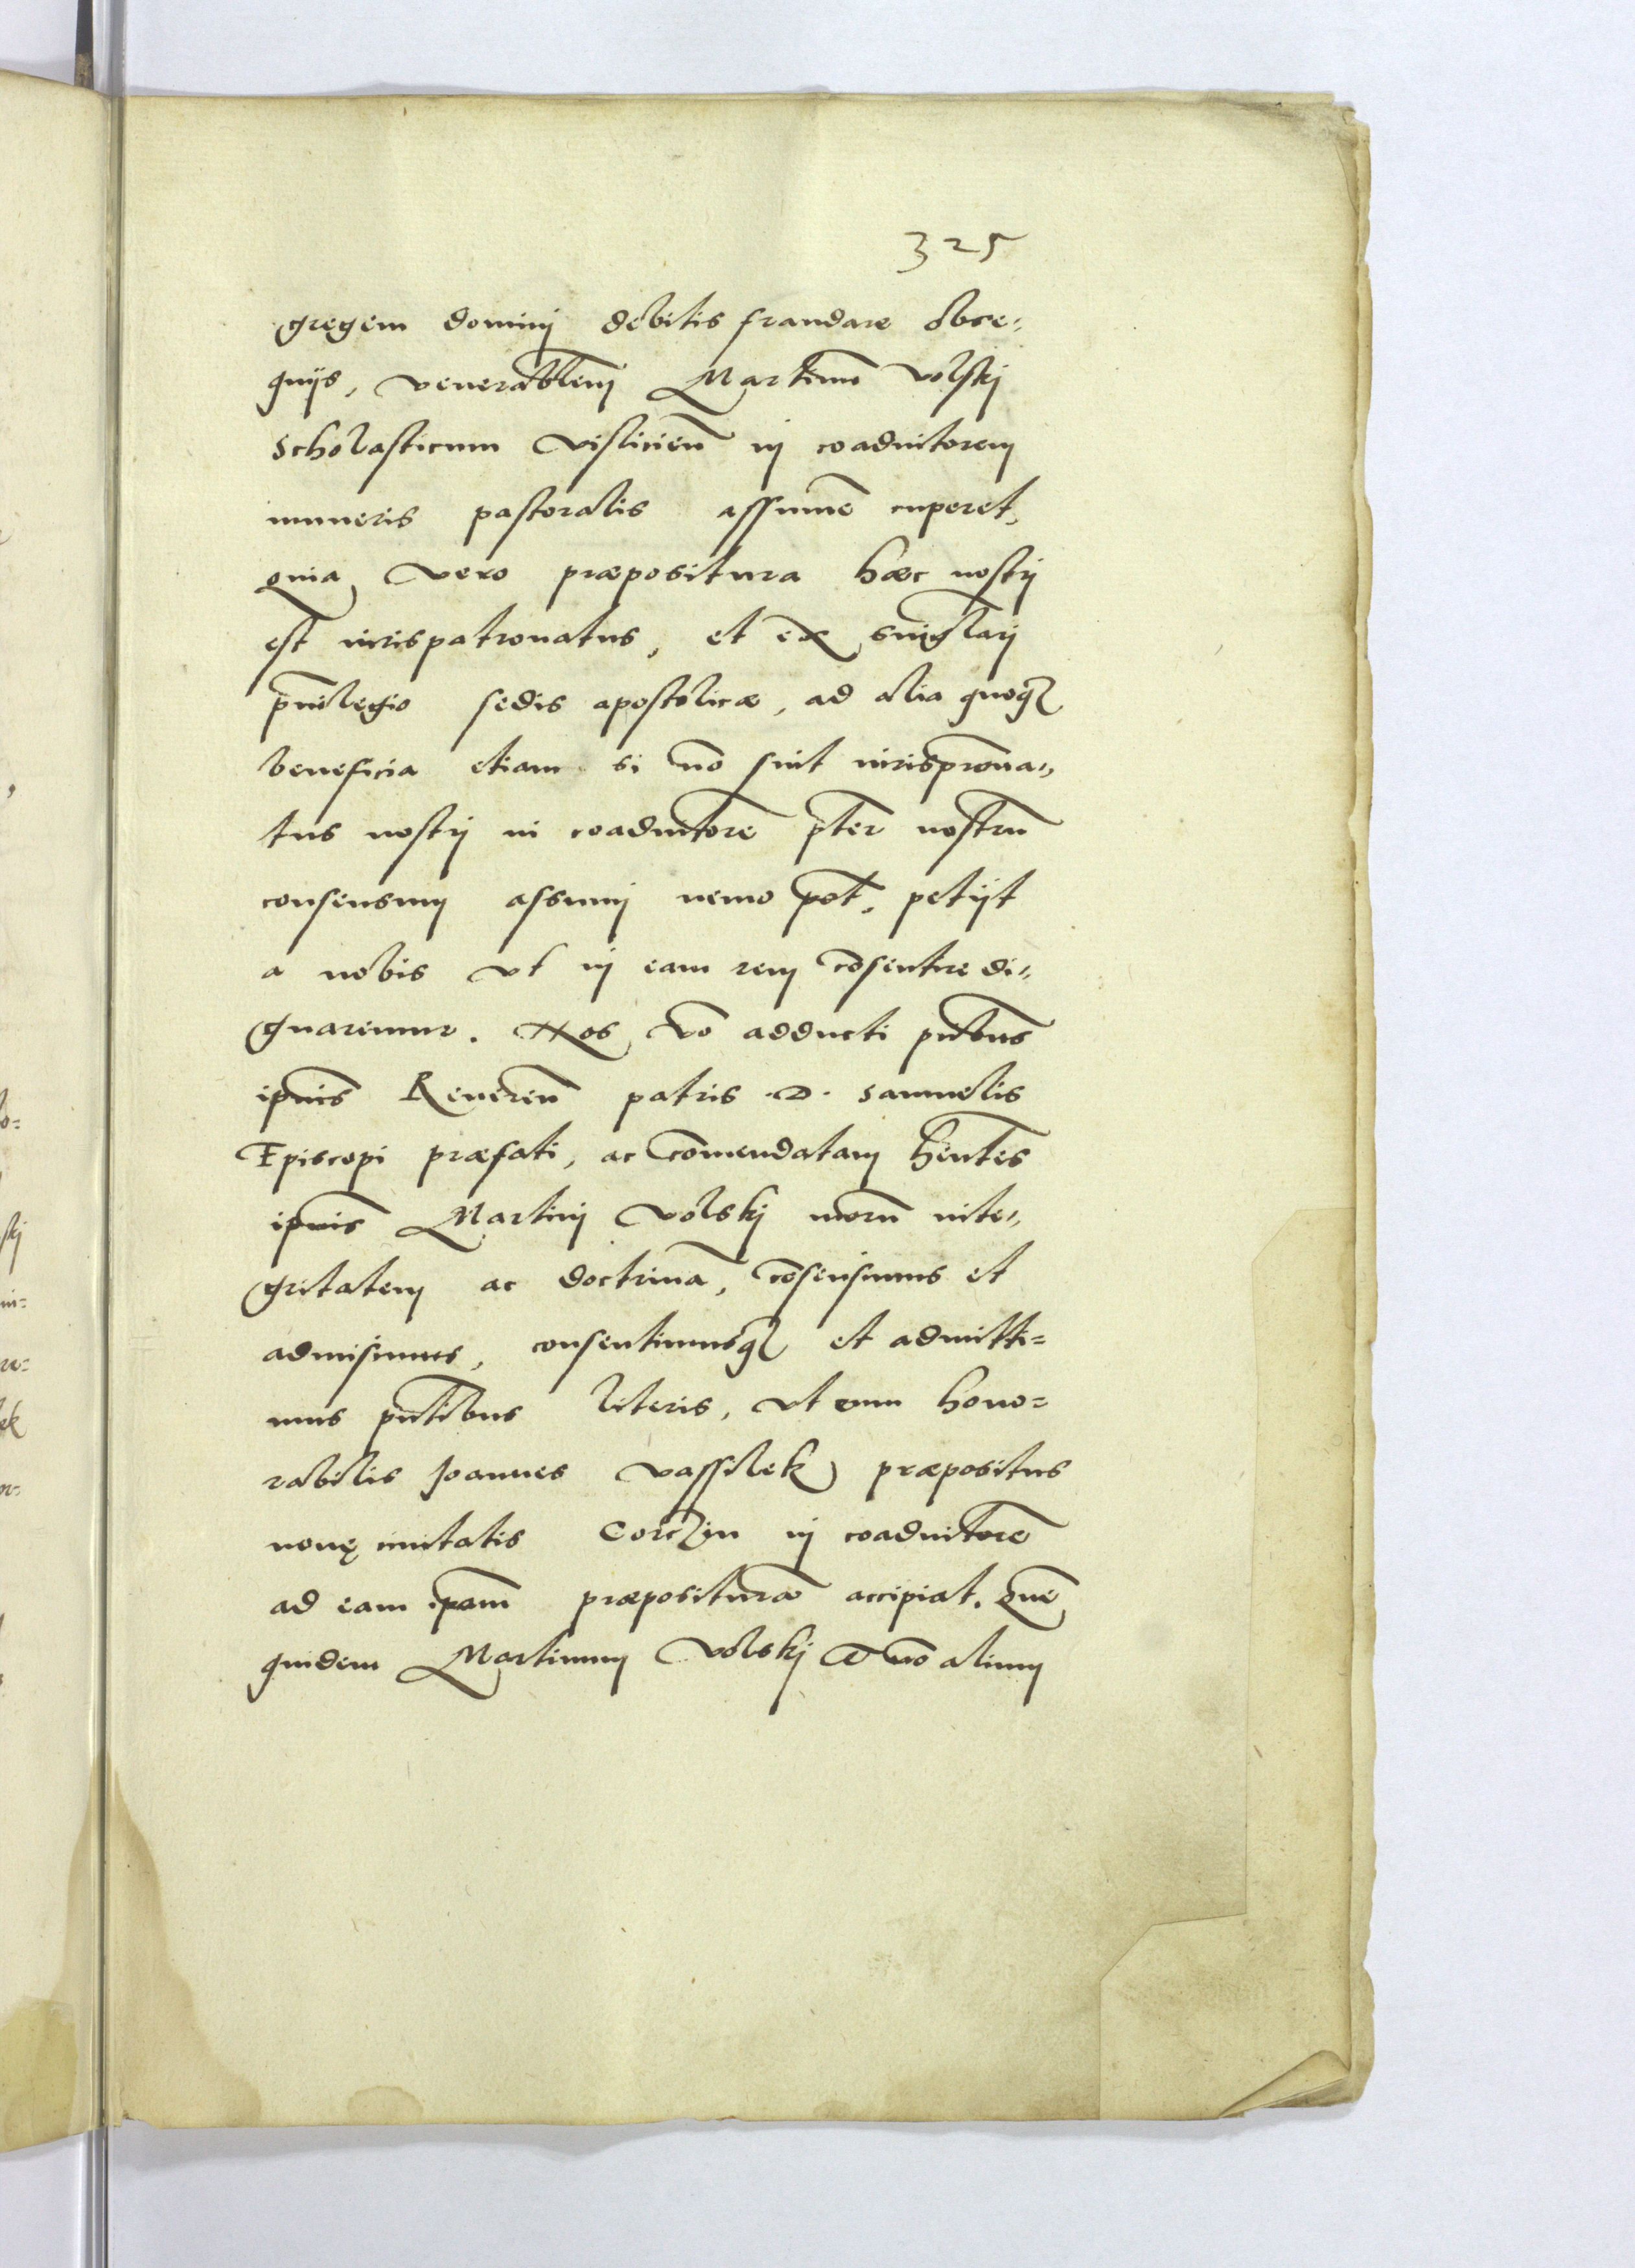 325
gregem dominj debitis fraudare obse-
quijs, venerabilem̄ Martinū Volskj
Scholasticum Visliciēn̄ in coadiutorem
muneris pastoralis assumē cuperet,
quia vero præpositura hæc nostrj
est iurispatronatus, et ex singlarj
pniłegio sedis apostolicæ, ad alia quoq₃
beneficia etiam si nō sint iurisprōna-
tus nostrj in coadiutorē pter nostrū
consensum assumj nemo pōt, petijt
a nobis vt in eam rem cōsentire di-
gnaremur. Nos vō adducti pcibus
ipīus Reueren̄ patris .D. Samuelis
Episcopi præfati, ac cōmendatam hēntes
ipīus Martinj Volskj morū inte-
gritatem ac doctrinā, cōsensimus et
admisimus, consentimusq₃ et admitti-
mus pn̄tibus literis, vt eum hono-
rabilis Joannes Vassilek præpositus
nouę ciuitatis Corczin in coadiutorē
ad eam ipam̄ præposituram accipiat. quē
quidem Martinum Volskj et nō alium